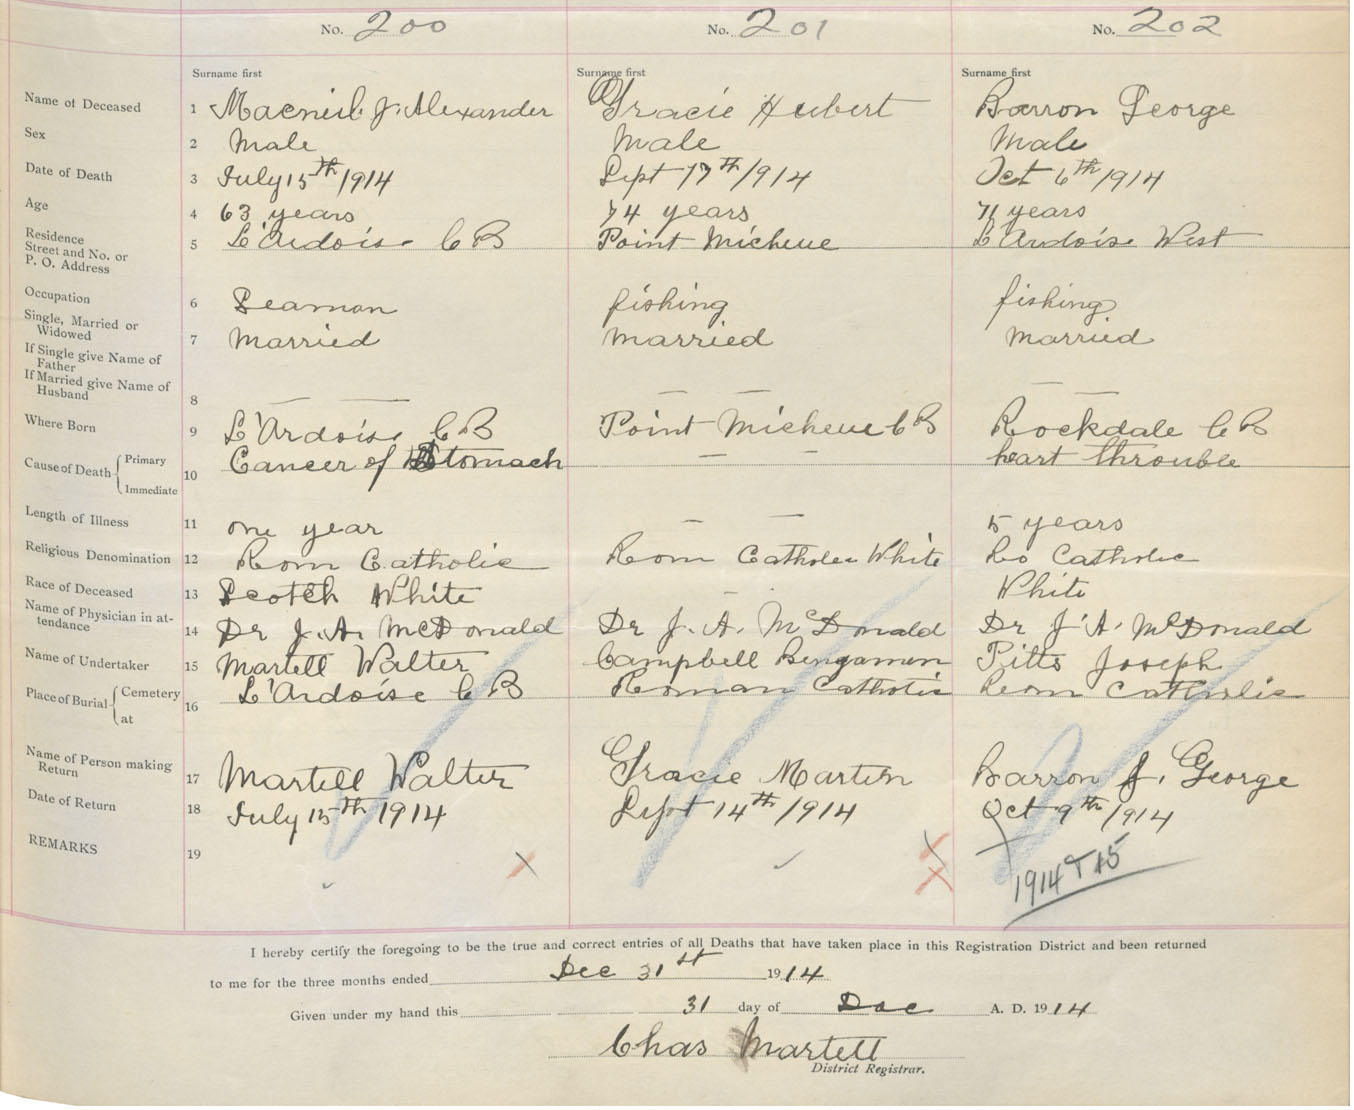 No. 200 No. 201 No. 202
Surname first Surname first Surname first
Name of Deceased 1 Macneil J. Alexander Gracie Hubert Barron George
Sex 2 Male Male Male
Date of Death 3 July 15th/1914 Sept 17th/914 Oct 6th/1914
Age 4 63 years 74 years 71 years
Residence 5 L'Ardoise C B Point Micheue L'Ardoise West
Street and No. or
P. O. Address
Occupation 6 Seaman fishing fishing
Single, Married or
Widowed 7 Married Married Married
If Single give Name of
Father
If Married give Name of
Husband 8 — — — — — —
Where Born 9 L'Ardoise C B Point Micheue C B Rockdale C B
Cause of Death { Primary Cancer of Stomach — — heart throuble
Immediate 10
Length of Illness 11 one year — — 5 years
Religious Denomination 12 Rom Catholic Rom Catholic White Ro Catholic
Race of Deceased 13 Scotch White White
Name of Physician in at-
tendance 14 Dr J. A. McDonald Dr J. A. McDonald Dr J A. McDonald
Name of Undertaker 15 Martell Walter Campbell Bengamen Pitts Joseph
Place of Burial { Cemetery L'Ardoise C B Roman Catholic Rom Catholic
at 16
Name of Person making
Return 17 Martell Walter Gracie Marten Barron J. George
Date of Return 18 July 15th 1914 Sept 14th/1914 Oct 9th/1914
REMARKS 19 1914 T 15
I hereby certify the foregoing to be the true and correct entries of all Deaths that have taken place in this Registration District and been returned
to me for the three months ended Dec 31st 1914
Given under my hand this 31 day of Dec A. D. 1914
Chas Martell
District Registrar.